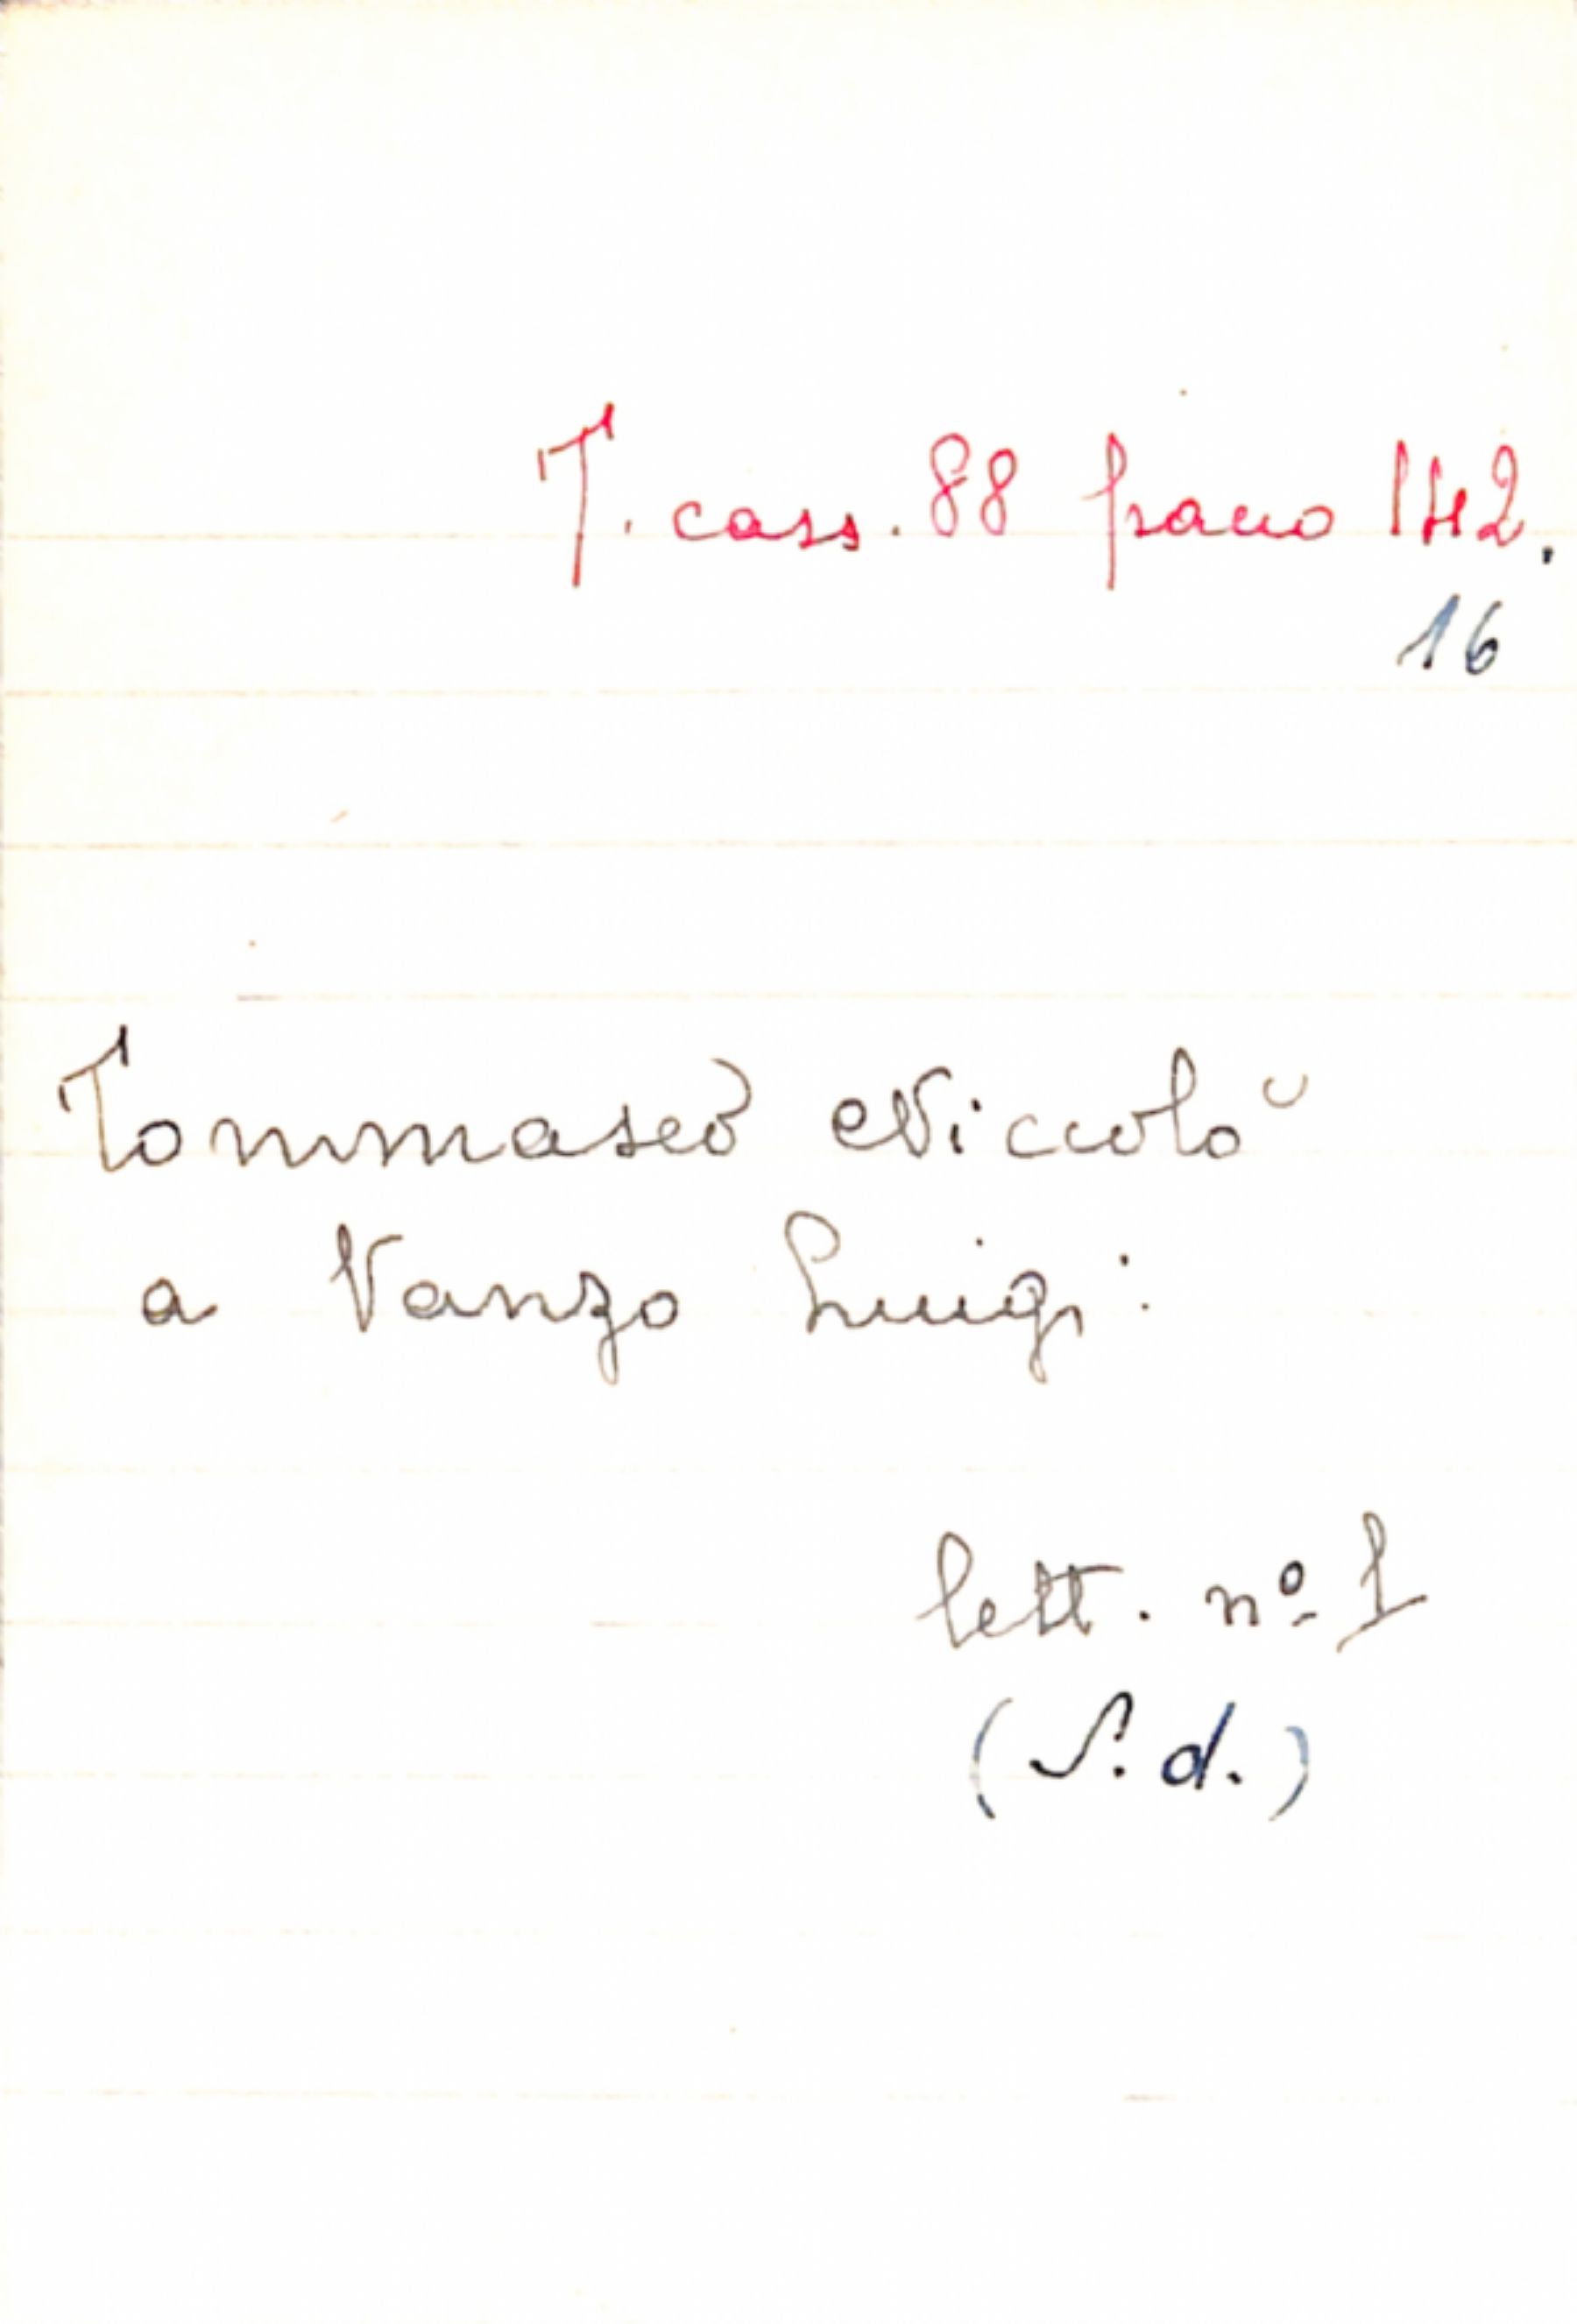 T. cass. 88 pacco 142.
16
Tommaseo Niccolò
a Vanzo Luigi:
lett. nº 1
(S. d.)